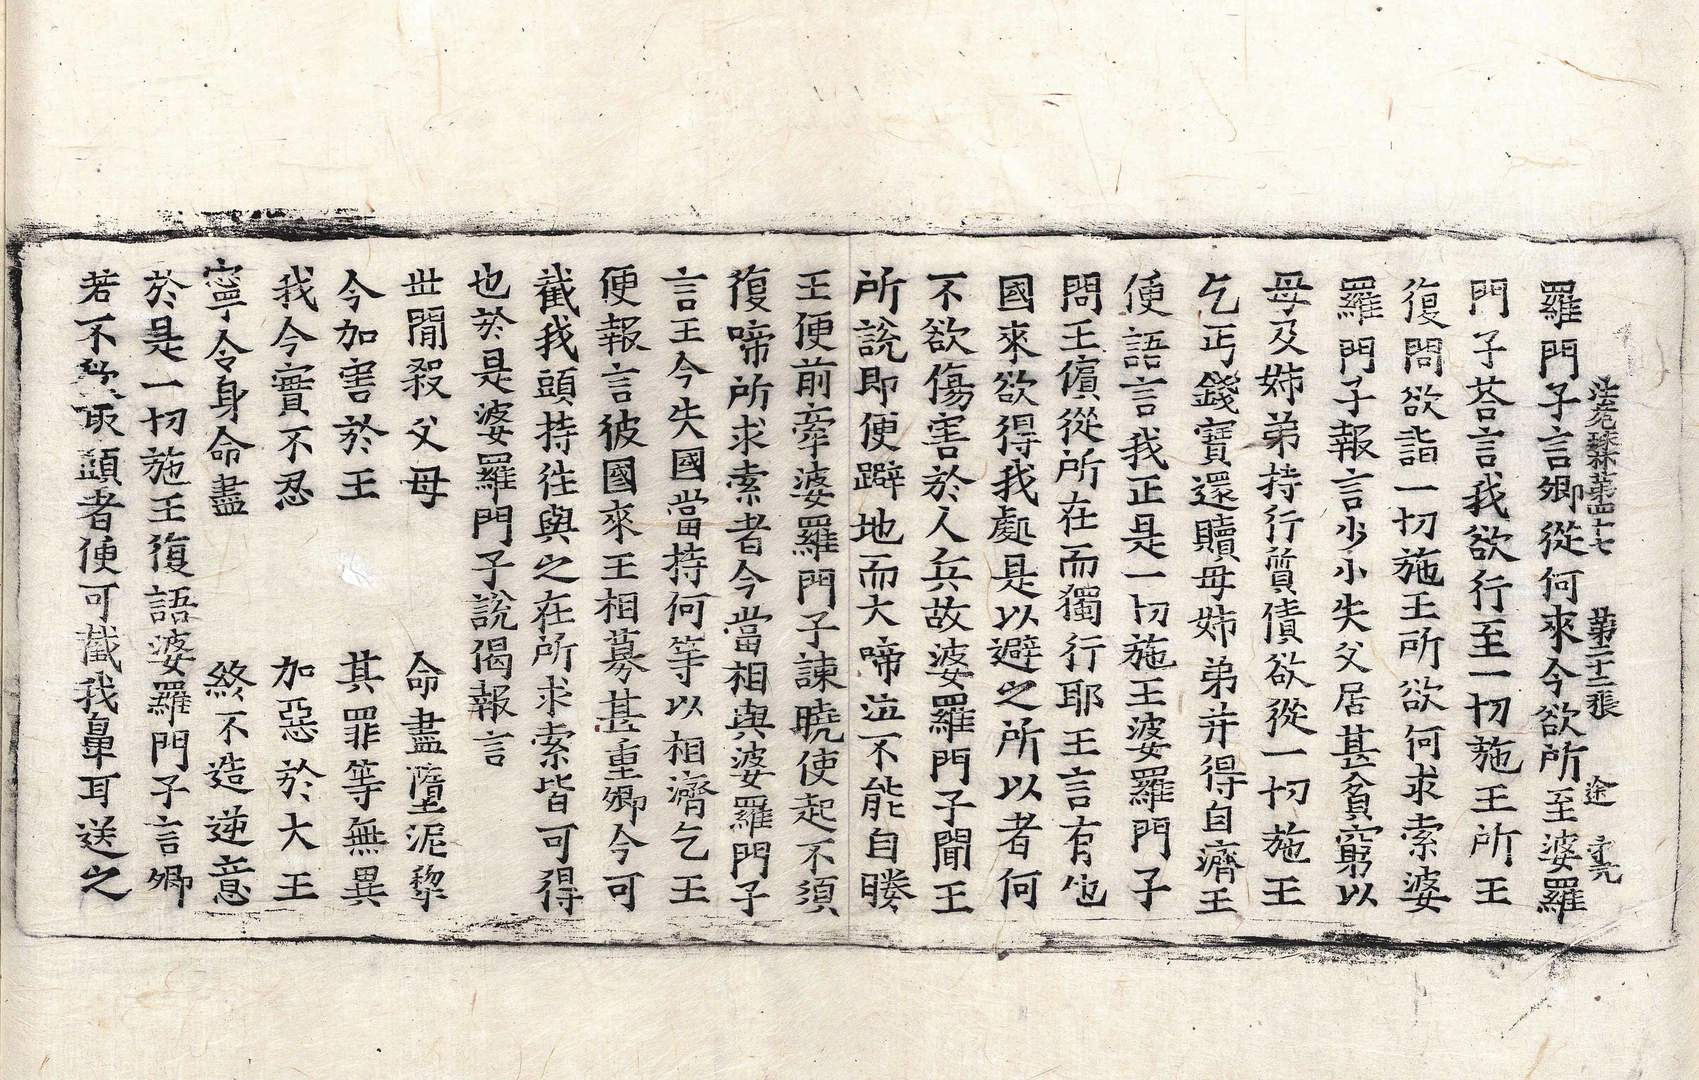 法苑珠林第四十七 第二十二張 途
羅門子言卿從何來今欲所至婆羅
門子荅言我欲行至一切施王所王
復問欲詣一切施王所欲何求索婆
羅門子報言少小失父居甚貧窮以
母及姉弟持行質債欲從一切施王
乞丐錢寶還贖母姉弟并得自濟王
便語言我正是一切施王婆羅門子
問王儐從所在而獨行耶王言有他
國來欲得我處是以避之所以者何
不欲傷害於人兵故婆羅門子聞王
所說即便躃地而大啼泣不能自勝
王便前牽婆羅門子諫曉使起不須
復啼所求索者今當相與婆羅門子
言王今失國當持何等以相濟乞王
便報言彼國來王相募甚重卿今可
截我頭持往與之在所求索皆可得
也於是婆羅門子說偈報言
世間殺父母 命盡墮泥黎
今加害於王 其罪等無異
我今實不忍 加惡於大王
寧令身命盡 終不造逆意
於是一切施王復語婆羅門子言卿
若不欲取頭者便可截我鼻耳送之